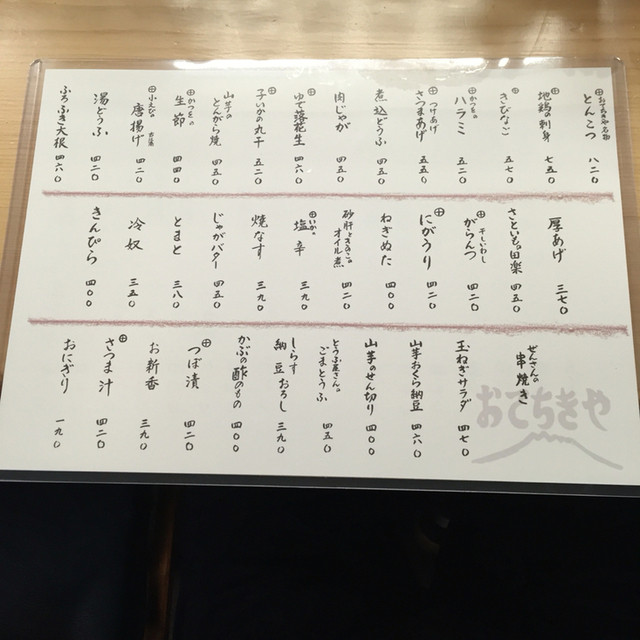 ㊉ おでちきや名物 とんこつ 八二〇
地鶏の刺身 七五〇
きびなご 五七〇
㊉ かつをの ハラミ 五二〇
㊉ つけあげ さつまあげ 五五〇
煮込どうふ 四五〇
肉じゃが 四二〇
㊉ ゆで落花生 四六〇
㊉ 子いかの丸干 五二〇
山芋の とんがら焼 四五〇
㊉ かつをの 生節 四四〇
㊉ 小えびの 唐揚げ 四二〇
湯どうふ 四二〇
ふろふき大根 四六〇
厚あげ 三七〇
さといもの田楽 四五〇
㊉ 干しいわし がらんつ 四二〇
㊉ にがうり 四二〇
ねぎぬた 四〇〇
砂肝ときのこの オイル煮 四二〇
㊉ いかの 塩辛 三九〇
焼なす 三九〇
じゃがバター 四五〇
とまと 三八〇
冷奴 三五〇
きんぴら 四〇〇
ぜんさんの 串焼き
玉ねぎサラダ 四七〇
山芋おくら納豆 四六〇
山芋のせん切り 四〇〇
とうふ屋さんの ごまとうふ 四五〇
しらす 納豆おろし 三九〇
かぶの酢のもの 四〇〇
つぼ漬 四二〇
お新香 三九〇
㊉ さつま汁 四二〇
おにぎり 一九〇
おてちきや